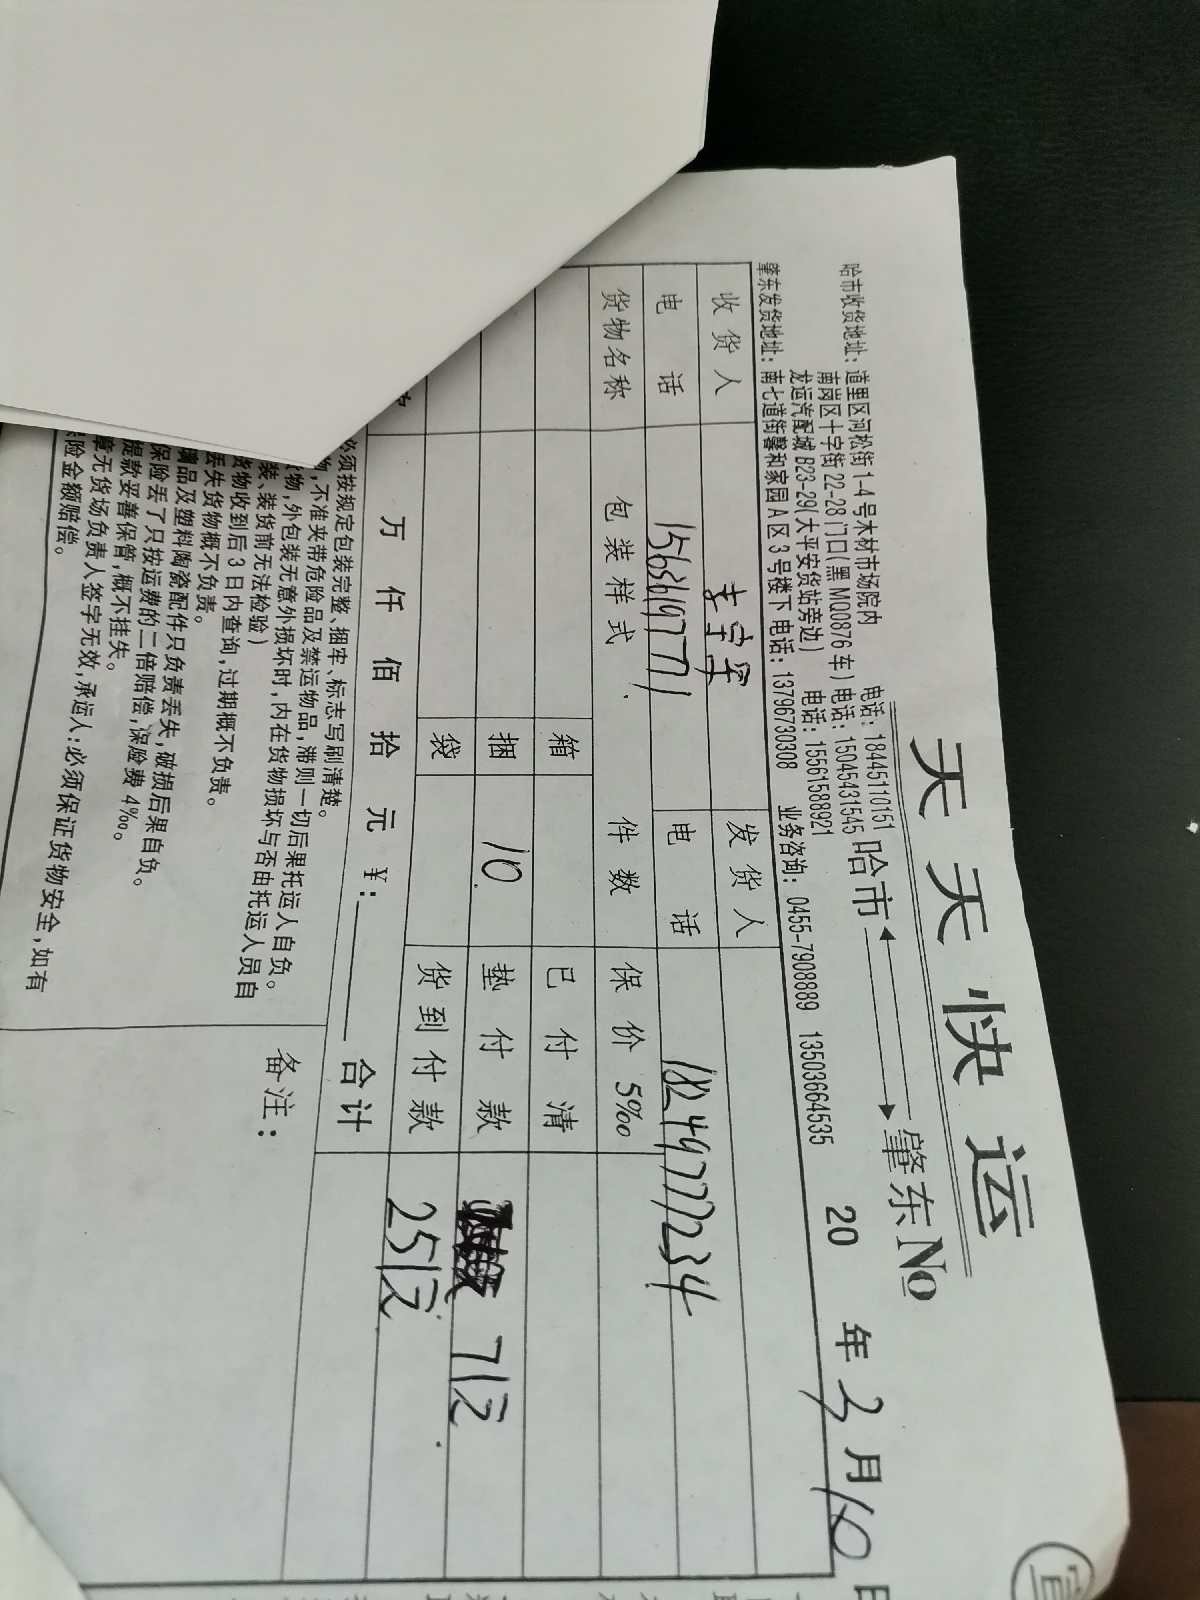 天天快运
哈市 肇东 №
哈市收货地址：道里区河松街1-4号木材市场院内 电话：18445110151
南岗区十字街22-28门口(黑MQ0876车) 电话：15045431545
龙运汽配城B23-29(大平安货站旁边) 电话：15561588921
肇东发货地址：南七道街馨和家园A区3号楼下 电话：13796730308 业务咨询：0455-7908889 13503664535
20 年3月10日
收货人 李宇军 发货人
电话 15636197771 电话 18249777234
货物名称 包装样式 件数 保价5‰
箱 已付清
捆 10 垫付款 71元
袋 货到付款 251元
万 仟 佰 拾 元 ¥： 合计
必须按规定包装完整、捆牢、标志写刷清楚。
物,不准夹带危险品及禁运物品,滞则一切后果托运人自负。
物,外包装无意外损坏时,内在货物损坏与否由托运人员自
装、装货前无法检验)
货物收到后3日内查询,过期概不负责。
丢失货物概不负责。
品及塑料陶瓷配件只负责丢失,破损后果自负。
保险丢了只按运费的二倍赔偿,保险费4‰。
提款妥善保管,概不挂失。
章无货场负责人签字无效,承运人:必须保证货物安全,如有
险金额赔偿。
备注：